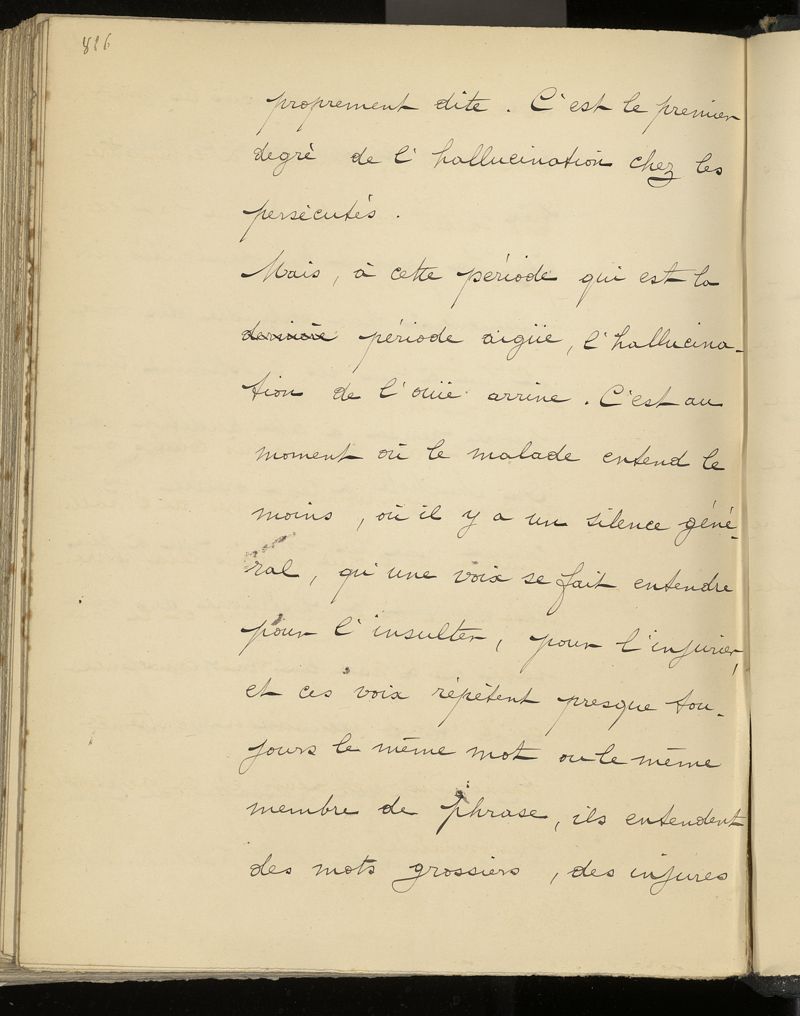 826
proprement dite. C'est le premier
degré de l'hallucination chez les
persécutés.
Mais, à cette période qui est la
dernière période aigüe, l'hallucina-
tion de l'ouïe arrive. C'est au
moment où le malade entend le
moins, où il y a un silence géné-
ral, qu'une voix se fait entendre
pour l'insulter, pour l'injurier,
et ces voix répètent presque tou-
jours le même mot ou le même
membre de phrase, ils entendent
des mots grossiers, des injures